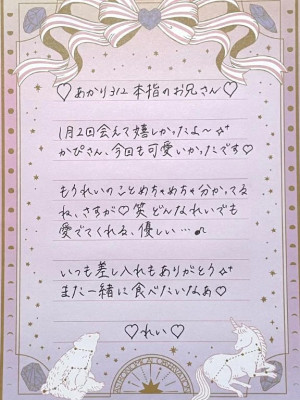 ♡あかり312 本指のお兄さん♡
1月2回会えて嬉しかったよ〜
かぴさん、今回も可愛いかったです♡
もうれいのことめちゃめちゃ分かってる
ね、さすが♡笑 どんなれいでも
愛でてくれる、優しい…♪
いつも差し入れもありがとう
また一緒に食べたいなあ♡
♡れい♡